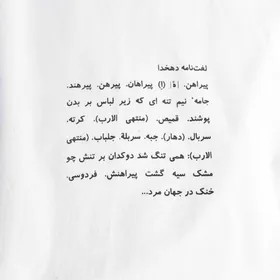 لغت‌نامه دهخدا
پیراهن. [هَ] (اِ) پیراهان. پیرهن. پیرهند.
جامهٔ نیم تنه ای که زیر لباس بر بدن
پوشند. قمیص. (منتهی الارب). کرته.
سربال. (دهار). جبه. سربلة. جلباب. (منتهی
الارب): همی تنگ شد دوکدان بر تنش چو
مشک سیه گشت پیراهنش. فردوسی.
خنک در جهان مرد...